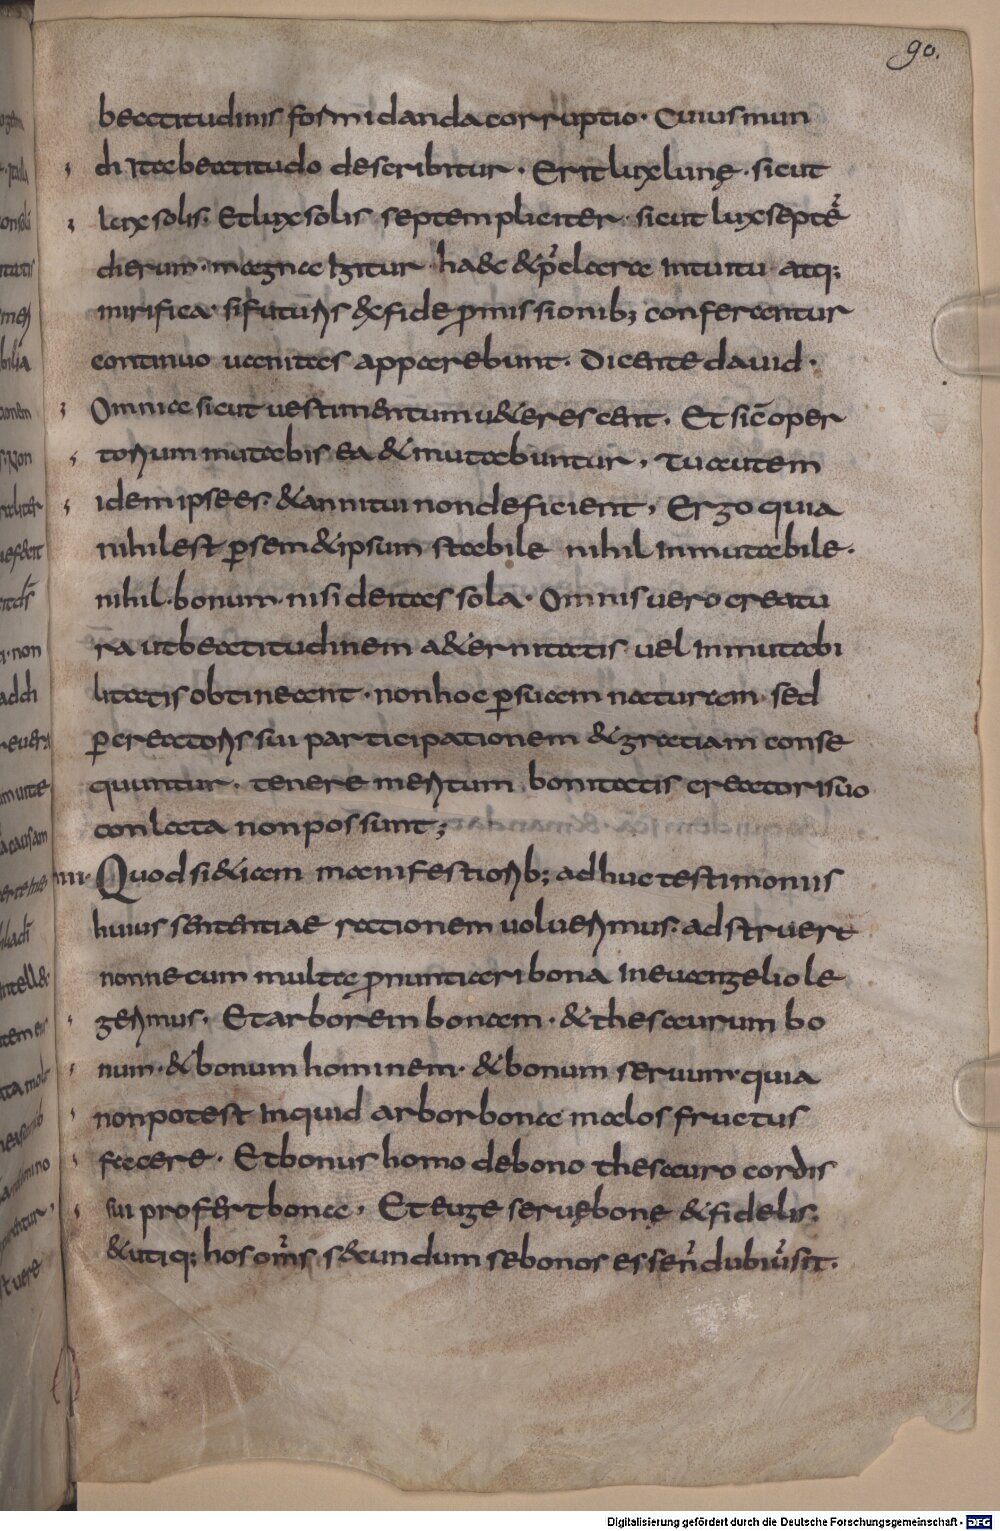 90.
beatitudinis formidanda corruptio. Cuius mun
di ita beatitudo describitur. Erit lux lunę. sicut
lux solis. Et lux solis septempliciter. sicut lux septē
dierum. magna igitur haec & p̄clara intuitu atq;
mirifica. si futuris & fide ꝓmissionib; conferantur
continuo uanitas apparebunt. Dicente dauid.
Omnia sicut uestimentum u&erescent. Et sic̄ oper
torium mutabis ea & mutabuntur. Tu autem
idem ipse es. & anni tui non deficient. Ergo quia
nihil est ꝑ sem&ipsum stabile nihil inmutabile.
nihil. bonum. nisi deitas sola. Omnis uero creatu
ra ut beatitudinem a&ernitatis uel inmutabi
litatis obtineant. non hoc ꝑ suam naturam sed
ꝑ creatoris sui participationem & gratiam conse
quuntur. tenere meritum bonitatis creatori suo
conlata non possunt;
IIII. Quod si &iam manifestiorib; adhuc testimoniis
huius sententiae rationem uoluerimus. adstruere
nonne cum multa ꝓnuntiari bona in euangelio le
gerimus. Et arborem bonam. & thesaurum bo
num. & bonum hominem. & bonum seruum. quia
non potest inquid arbor bona malos fructus
facere. Et bonus homo de bono thesauro cordis
sui profert bona. Et euge serue bone & fidelis.
& utiq; hos om̄s s&cundum se bonos essen̄ dubiu᷎ sit.
Digitalisierung gefördert durch die Deutsche Forschungsgemeinschaft - DFG